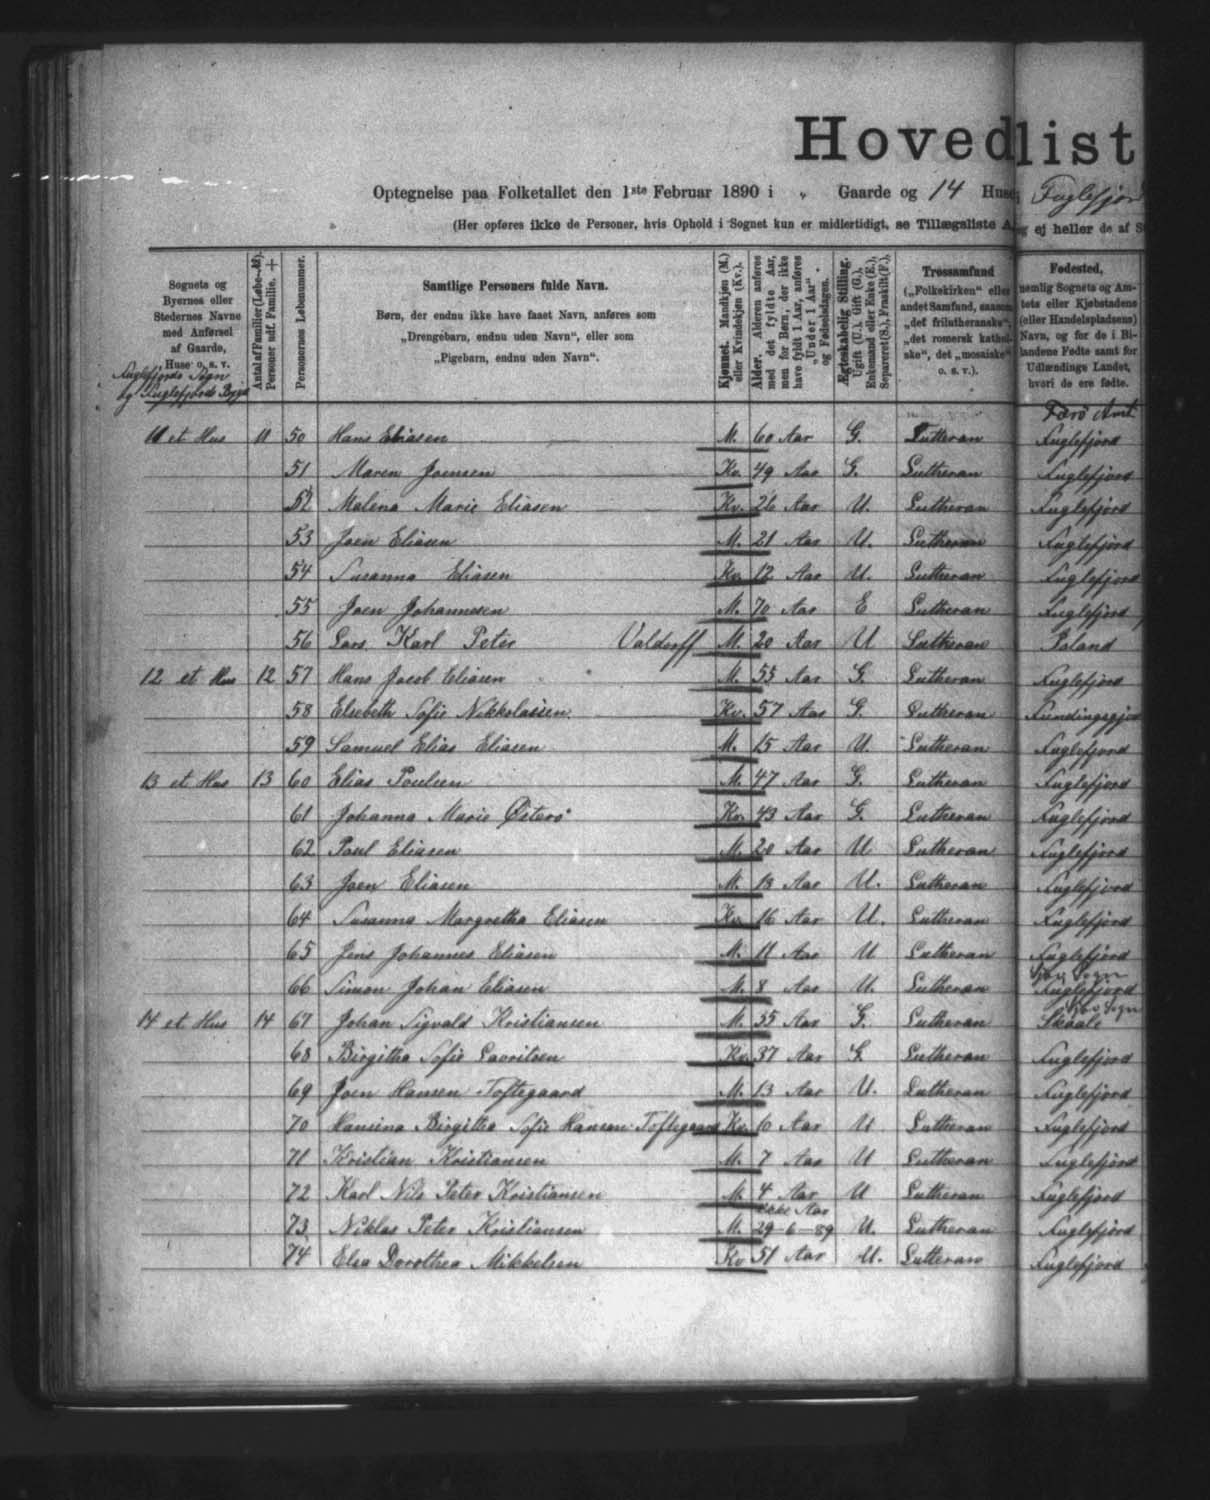 Hovedlist
Optegnelse paa Folketallet den 1ste Februar 1890 i „ Gaarde og 14 Huse i Fuglefjord
(Her opføres ikke de Personer, hvis Ophold i Sognet kun er midlertidigt, se Tillægsliste A, og ej heller de af S
Sognets og Byernes eller Stedernes Navne med Anførsel af Gaarde, Huse o. s. v.
Fuglefjords Sogn og Fuglefjords Bygd
Antal af Familier (Løbe-No.). Personer udf. Familie. +
Personernes Løbenummer.
Samtlige Personers fulde Navn.
Børn, der endnu ikke have faaet Navn, anføres som
„Drengebarn, endnu uden Navn“, eller som
„Pigebarn, endnu uden Navn“.
Kjønnet. Mandkjøn (M.) eller Kvindekjøn (Kv.).
Alder. Alderen anføres med det fyldte Aar, men for Børn, der ikke have fyldt 1 Aar, anføres „Under 1 Aar“ og Fødselsdagen.
Ægteskabelig Stilling. Ugift (U.), Gift (G.), Enkemand eller Enke (E.), Separeret (S.), Fraskilt (F.).
Trossamfund („Folkekirken“ eller andet Samfund, saasom „det frilutheranske“, „det romersk katholske“, det „mosaiske“ o. s. v.).
Fødested, nemlig Sognets og Amtets eller Kjøbstadens (eller Handelspladsens) Navn, og for de i Bilandene Fødte samt for Udlændinge Landet, hvori de ere fødte.
Færø Amt.
11 et Hus 11 50 Hans Eliasen M. 60 Aar G. Lutheran Fuglefjord
51 Maren Joensen Kv. 49 Aar G. Lutheran Fuglefjord
52 Malena Marie Eliasen Kv. 26 Aar U. Lutheran Fuglefjord
53 Joen Eliasen M. 21 Aar U. Lutheran Fuglefjord
54 Susanna Eliasen Kv. 12 Aar U. Lutheran Fuglefjord
55 Joen Johannesen M. 70 Aar E Lutheran Fuglefjord
56 Lars Karl Peter Valdorff M. 20 Aar U Lutheran
12 et Hus 12 57 Hans Jacob Eliasen M. 55 Aar G. Lutheran Fuglefjord
58 Elsebeth Sofie Nikkolasien Kv. 57 Aar G. Lutheran
59 Samuel Elias Eliasen M. 15 Aar U. Lutheran Fuglefjord
13 et Hus 13 60 Elias Poulsen M. 47 Aar G. Lutheran Fuglefjord
61 Johanna Marie Østerø Kv. 43 Aar G. Lutheran Fuglefjord
62 Poul Eliasen M. 20 Aar U Lutheran Fuglefjord
63 Joen Eliasen M. 18 Aar U. Lutheran Fuglefjord
64 Susanna Margretha Eliasen Kv. 16 Aar U. Lutheran Fuglefjord
65 Jens Johannes Eliasen M. 11 Aar U Lutheran Fuglefjord
66 Simon Johan Eliasen M. 8 Aar U. Lutheran Fuglefjord
14 et Hus 14 67 Johan Sigvald Kristiansen M. 35 Aar G. Lutheran Skaale
68 Birgitha Sofie Lavritsen Kv. 37 Aar G. Lutheran Fuglefjord
69 Joen Hansen Toftegaard M. 13 Aar U. Lutheran Fuglefjord
70 Hansina Birgitha Sofie Hansen Toftegaard Kv. 6 Aar U Lutheran Fuglefjord
71 Kristian Kristiansen M. 7 Aar U Lutheran Fuglefjord
72 Karl Nils Peter Kristiansen M. 4 Aar U Lutheran Fuglefjord
73 Niklas Peter Kristiansen M. ikke Aar 29-6-89 U. Lutheran Fuglefjord
74 Elsa Dorothea Mikkelsen Kv 51 Aar U. Lutteran Fuglefjord